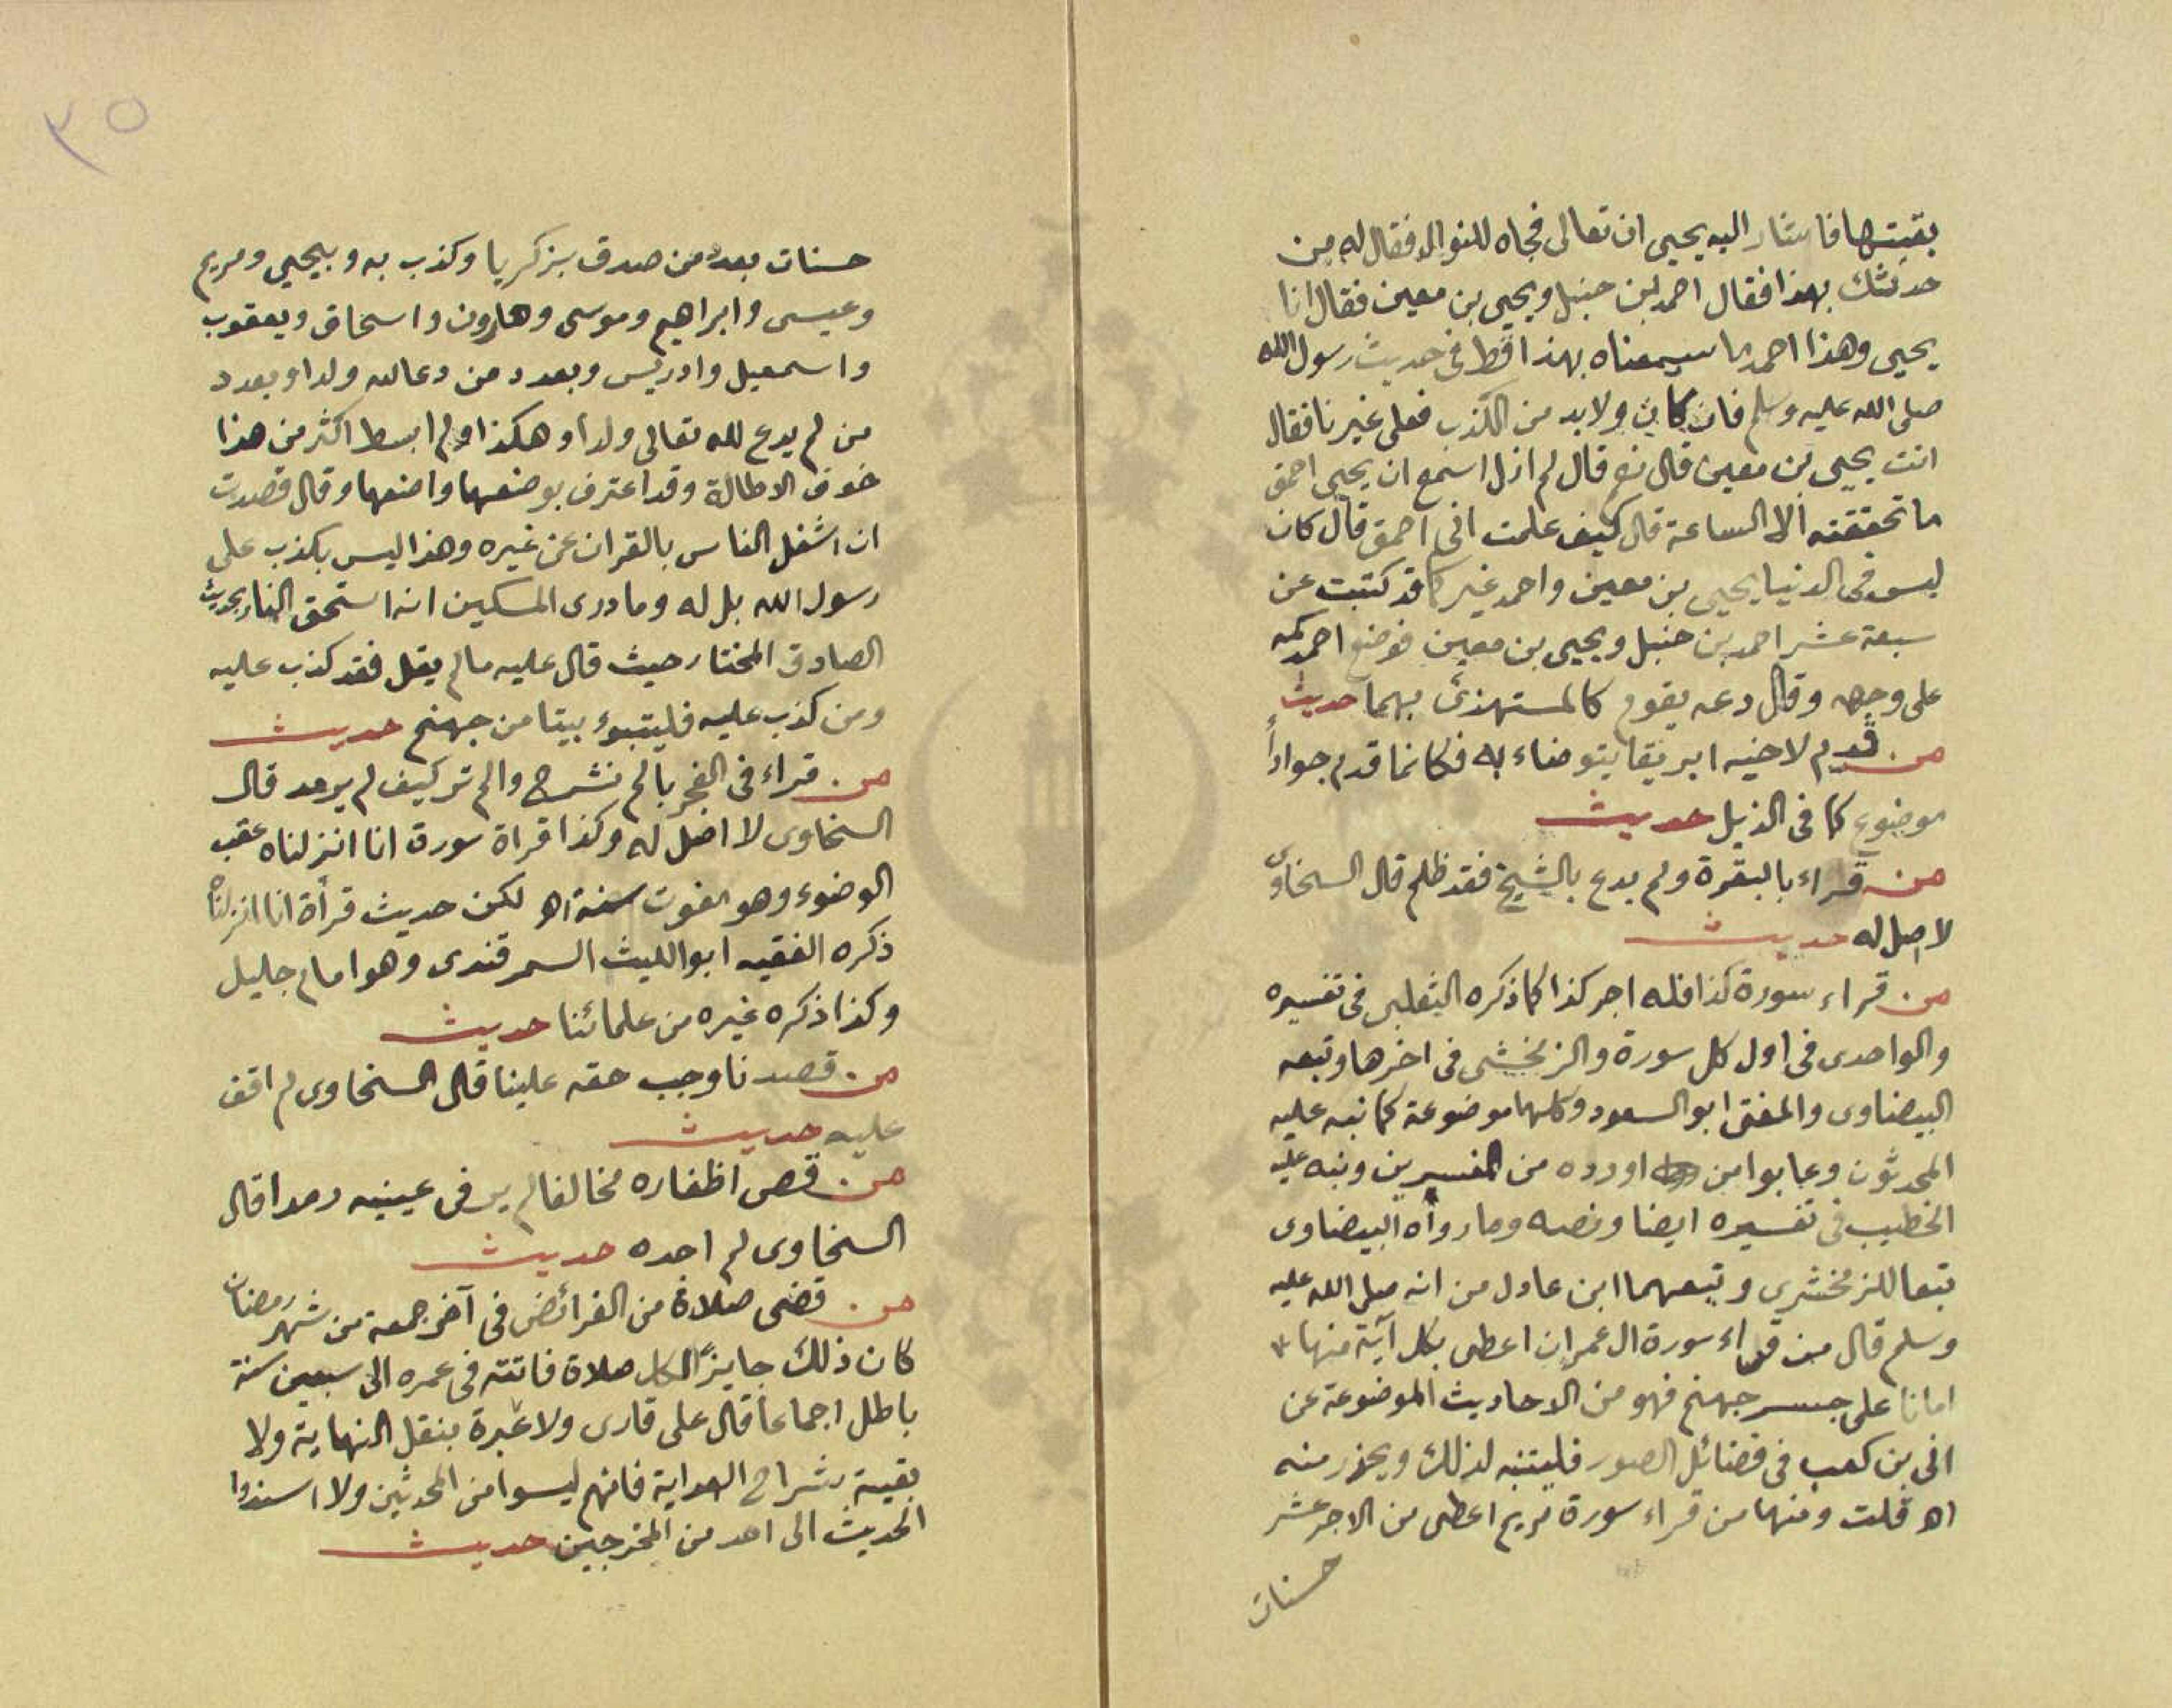 بقيتها فاشار اليه يحيى ان تعالى فجاه للنوال فقال له من
حدثك بهذا فقال احمد بن حنبل ويحيى بن معين فقال انا
يحيى وهذا احمد ما سمعناه بهذا قط في حديث رسول الله
صلى الله عليه وسلم فان كان ولابد من الكذب فعلى غيرنا فقال
انت يحيى بن معين قال نعم قال لم ازل اسمع ان يحيى احمق
ما تحققته الا الساعة قال كيف علمت اني احمق قال كان
ليس في الدنيا يحيى بن معين واحمد غيركما قد كتبت عن
سبعة عشر احمد بن حنبل ويحيى بن معين فوضع احمد كمه
على وجهه وقال دعه يقوم كالمستهزئ بهما حديث
من قدم لاخيه ابريقا يتوضاء به فكانما قدم جواداً
موضوع كما في الذيل حديث
من قراء بالبقرة ولم يدع بالشيخ فقد ظلم قال السخاوى
لا اصل له حديث
من قراء سورة كذا فله اجر كذا كما ذكره الثعلبى في تفسيره
والواحدى في اول كل سورة والزمخشى في اخرها وتبعه
البيضاوى والمفتى ابو السعود وكلها موضوعة كما نبه عليه
المحدثون وعابوا من اورده من المفسرين ونبه عليه
الخطيب في تفسيره ايضا ونصه وما رواه البيضاوى
تبعا للزمخشرى وتبعهما ابن عادل من انه صلى الله عليه
وسلم قال من قراء سورة ال عمران اعطى بكل آية منها
امانا على جسر جهنم فهو من الاحاديث الموضوعة عن
ابى بن كعب في فضائل الصور فليتنبه لذلك ويحذر منه
اه قلت ومنها من قراء سورة مريم اعطى من الاجر عشر
حسنات
٣٥
حسنات بعدد من صدق بزكريا وكذب به وبيحيى ومريم
وعيسى وابراهيم وموسى وهارون واسحاق ويعقوب
واسمعيل وادريس وبعدد من دعا لله ولدا وبعدد
من لم يدع لله تعالى ولدا وهكذا ولم ابسط اكثر من هذا
خوف الاطالة وقد اعترف بوضعها واضعها وقال قصدت
ان اشغل الناس بالقران عن غيره وهذا ليس بكذب على
رسول الله بل له وما درى المسكين انه استحق النار بحديث
الصادق المختار حيث قال عليه ما لم يقل فقد كذب عليه
ومن كذب عليه فليتبوء بيتا من جهنم حديث
من قراء في الفجر بالم نشرح والم تر كيف لم يرمد قال
السخاوى لا اصل له وكذا قراة سورة انا انزلناه عقب
الوضوء وهو مفوت سنة اه لكن حديث قرأة انا انزلناه
ذكره الفقيه ابو الليث السمرقندى وهو امام جليل
وكذا ذكره غيره من علمائنا حديث
من قصدنا وجب حقه علينا قال السخاوى لم اقف
عليه حديث
من قص اظفاره مخالفا لم ير في عينيه رمدا قال
السخاوى لم اجده حديث
من قضى صلاة من الفرائض في آخر جمعة من شهر رمضان
كان ذلك جايزًا لكل صلاة فاتته في عمره الى سبعين سنة
باطل اجماعا قال على قارى ولا عبرة بنقل النهاية ولا
بقية شراح الهداية فانهم ليسوا من المحدثين ولا اسندوا
الحديث الى احد من المخرجين حديث